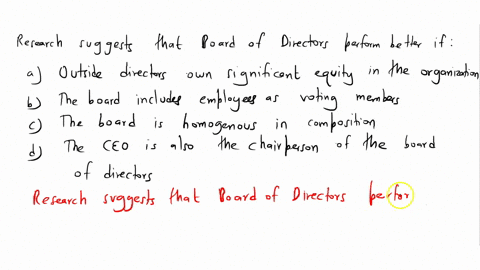 Research suggests that Board of Directors perform better if:
a) Outside directors own significant equity in the organization
b) The board includes employees as voting members
c) The board is homogenous in composition
d) The CEO is also the chairperson of the board
of directors
Research suggests that Board of Directors perfor